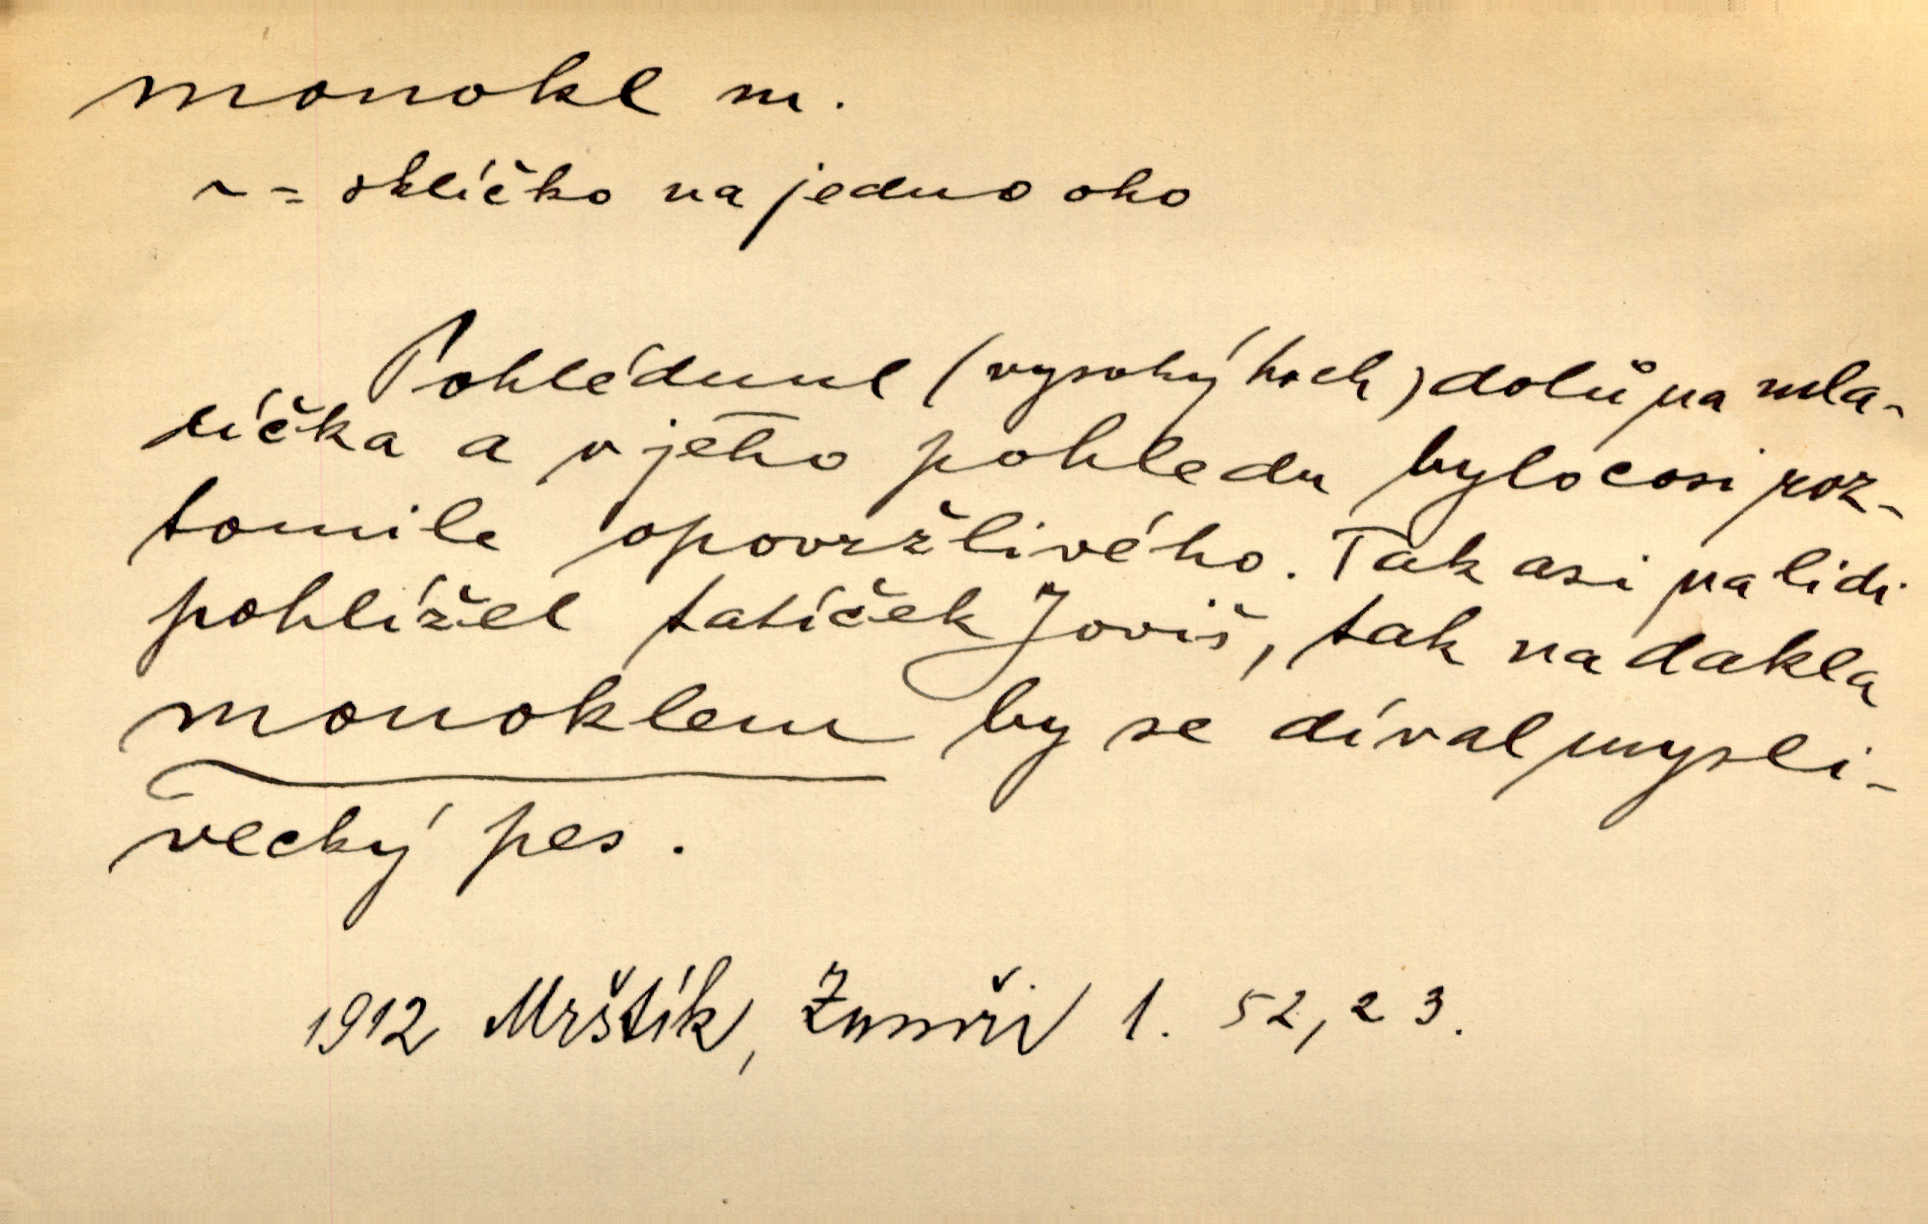 monokl m.
~ = sklíčko na jedno oko
Pohlédnul (vysoký hoch) dolů na mla-
díčka a v jeho pohledu bylo cosi roz-
tomile opovržlivého. Tak asi na lidi
pohlížel tatíček Joviš, tak na dakla
monoklem by se díval mysli-
vecký pes.
1912 Mrštík, Zumři 1. 52, 23.